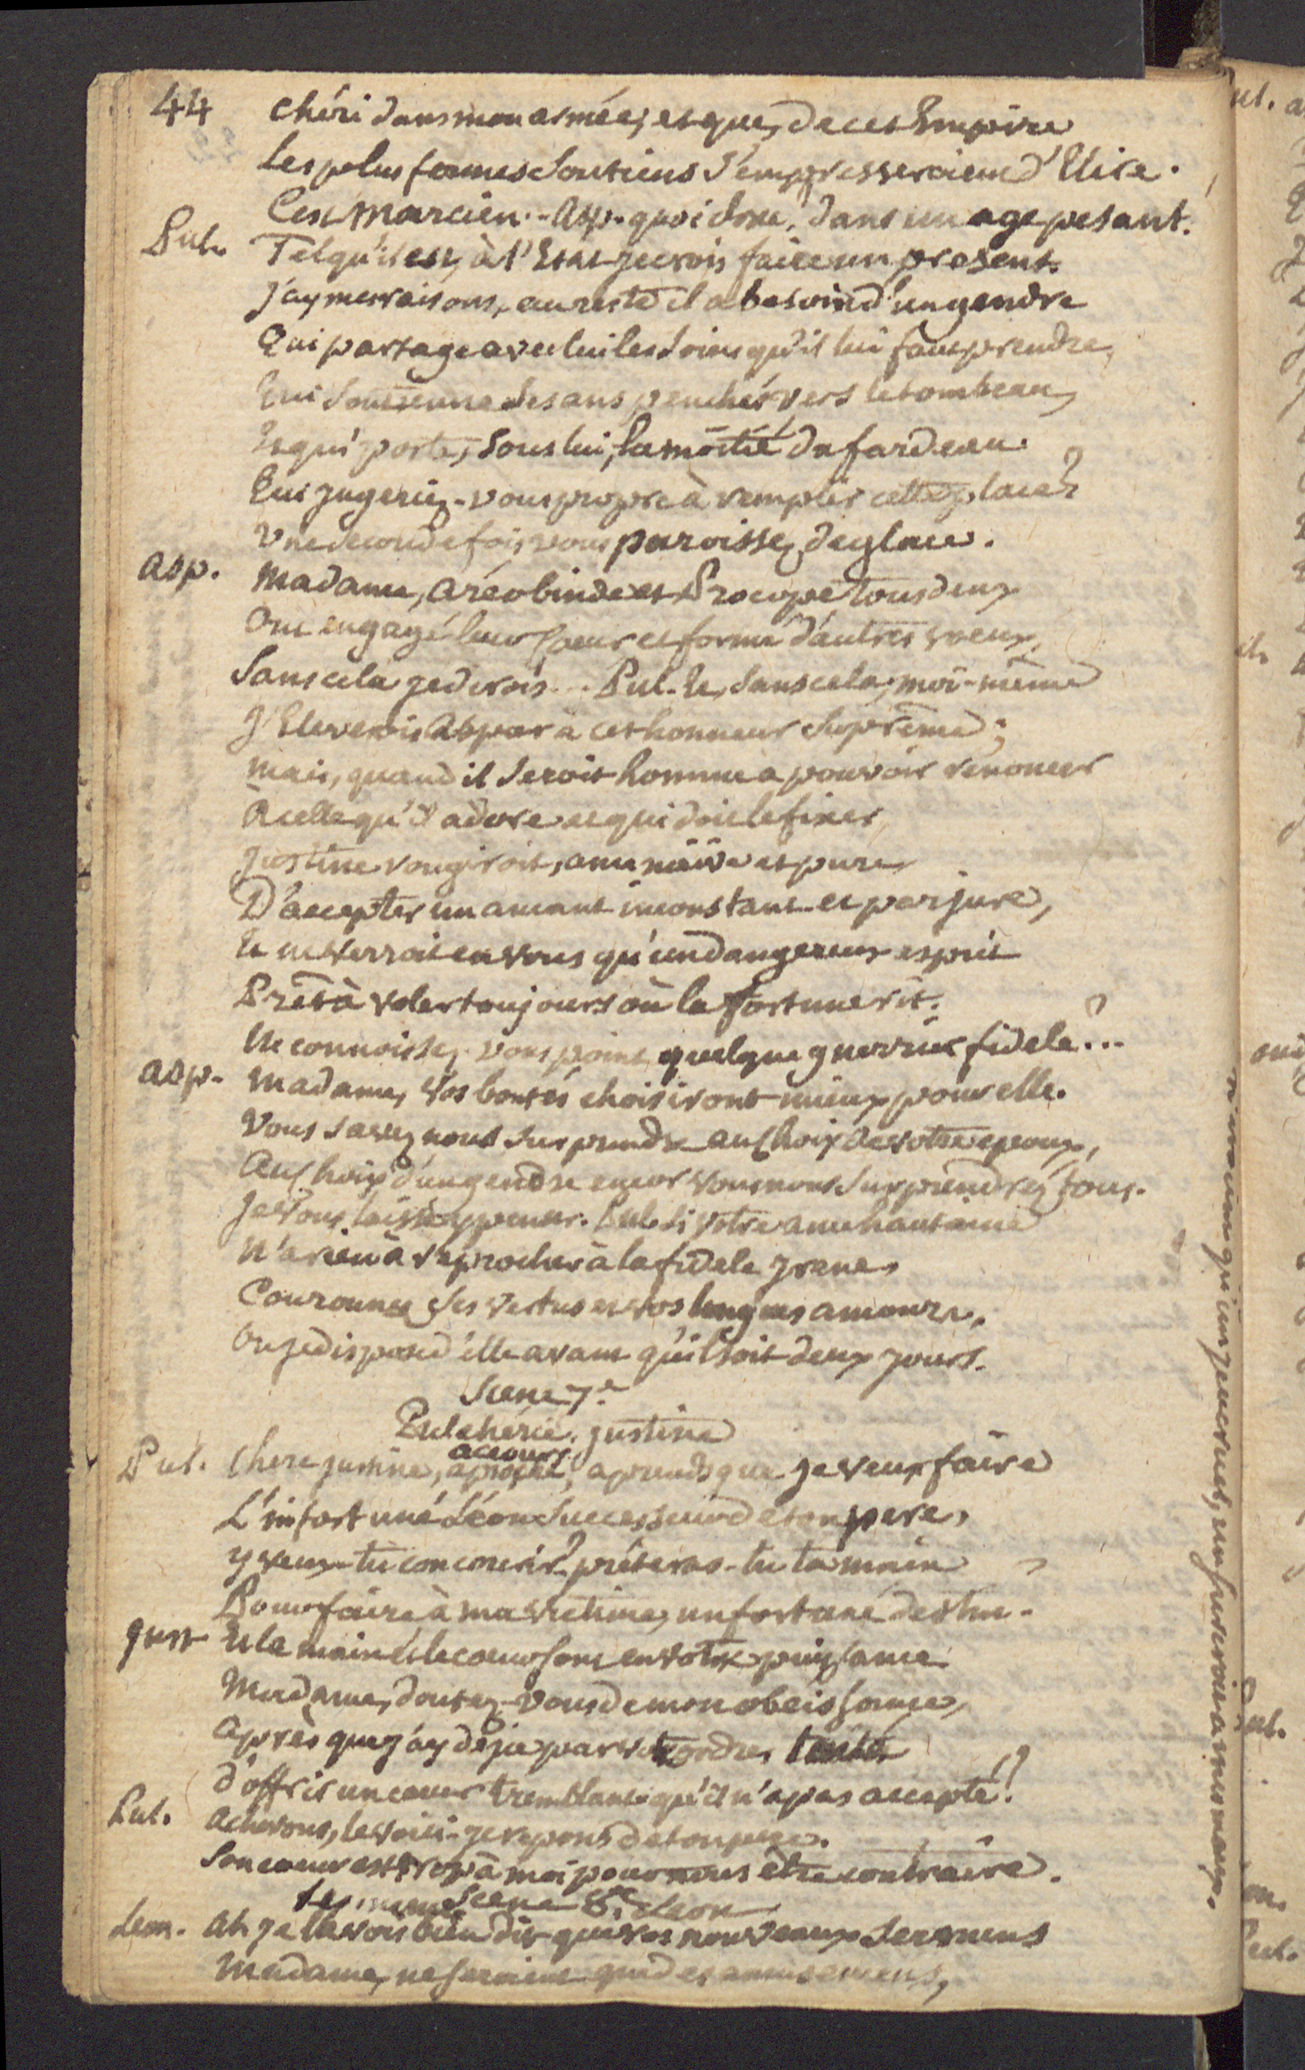 44 chéri dans mon armée, et que, de cet Empire
Les plus fermes soutiens s'empresseroient d'Elire.
C'est Marcien. - Asp. quoi donc, dans un age pesant.
Pul. Tel qu'il est, à l'Etat je crois faire un present.
j'ay mes raisons, au reste il a besoin d'un gendre
Qui partage avec lui les soins qu'il lui faut prendre,
Qui soutienne des ans penchés vers le tombeau,
Et qui porte, sous lui, la moitié du fardeau.
Qui jugeriez-vous propre à remplir cette place?
Une seconde fois vous paroissez de glace.
Asp. Madame, Aréobinde et Procope tous deux
Ont engagé leur coeur et formé d'autres voeux,
Sans cela je dirois... Pul. Et, sans cela, moi-même
J'Eleverois Aspar à cet honneur suprême;
Mais, quand il seroit homme a pouvoir renoncer
A celle qu'il adore et qui doit le fixer,
Justine rougiroit, ame naïve et pure,
D'accepter un amant inconstant et parjure,
Et ne verroit en vous qu'un dangereux esprit
Prêt à voler toujours où la fortune rit.
Ne connoissez-vous point quelque guerrier fidele...?
Asp. Madame, Vos bontés choisiront mieux pour elle.
Vous savez nous surprendre au choix de votre epoux,
Au choix d'un gendre encor vous nous surprendrez tous.
Je vous laisse y penser. Pul. Si votre ame hautaine
N'a rien à reprocher à la fidele Irene,
Couronnez ses vertus et vos longues amours,
Ou je dispose d'elle avant qu'il soit deux jours.
Scene 7e
Pulcherie. Justine
accours
Pul. Chere justine, aproche, aprends que je veux faire
L'infortuné Léon successeur de ton pere,
y veux-tu concourir? prêteras-tu ta main
Pour faire à ma victime, un fortuné destin.
Just. Et la main et le coeur sont en votre puissance
Madame, doutez-vous de mon obeissance,
Après que j'ay deja par votre ordre, tenté
d'offrir un coeur tremblant qu'il n'a pas accepté!?
Pul. Achevons, le voici. je repons de ton pere.
Son coeur est trop à moi pour nous être contraire.
Les mêmes Scene 8e. Leon
Leon. Ah je l'avois bien dit que vos nouveaux sermens
Madame, ne seroient que des amusemens,